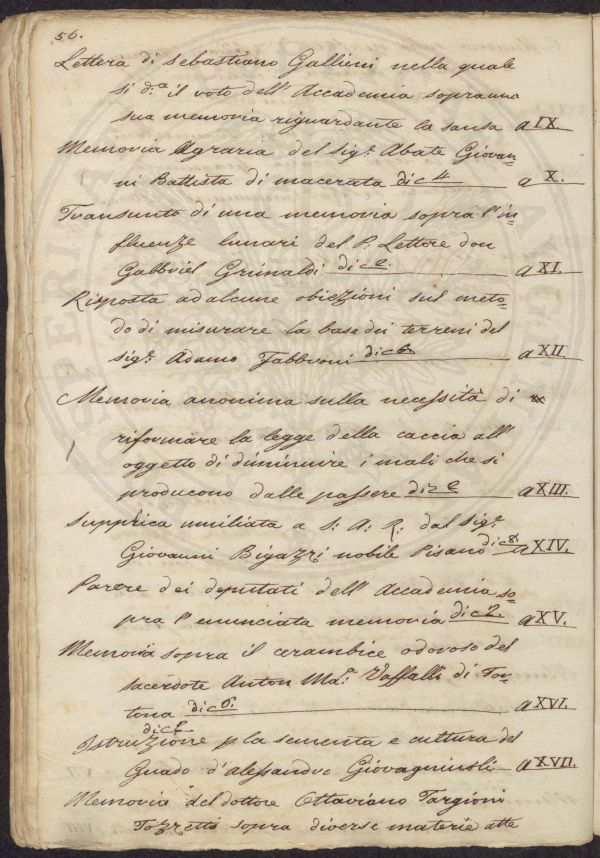 56.
Lettera di Sebastiano Gallieni nella quale
si d.a il voto dell' Accademia sopra una
sua memoria riguardante la sansa a IX.
Memoria Agraria del Sig.r Abate Giovan-
ni Battista di macerata di c 4 a X.
Transunto di una memoria sopra l'in-
fluenze lunari del P. Lettore don
Gabbriel Grimaldi di c 2. a XI.
Risposta ad alcune obiezzioni sul meto-
do di misurare la base dei terreni del
sig.r Adamo Fabbroni di c 6 a XII.
Memoria anonima sulla necessità di
riformare la legge della caccia all'
oggetto di diminuire i mali che si
producono dalle passere di c a XIII.
Supplica umiliata a S: A: R: dal Sig.r
Giovanni Bigazzi nobile Pisano di c 8 a XIV.
Parere dei deputati dell' Accademia so-
pra l'enunciata memoria di c 2. a XV.
Memoria sopra il cerambice odoroso del
sacerdote Anton Ma.a Vassalli di Tor-
tona di c 6. a XVI.
di c
Istruzione p la sementa e cultura del
Guado d'alessandro Giovagninsti a XVII.
Memoria del dottore Ottaviano Targioni
Tozzetti sopra diverse materie atte